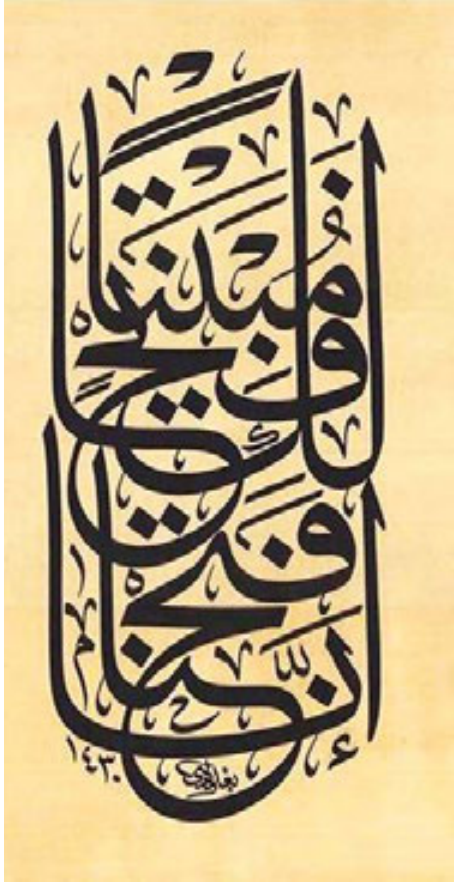 إِنَّا فَتَحْنَا
لَكَ فَتْحًا مُبِينًا
١٤٣٠